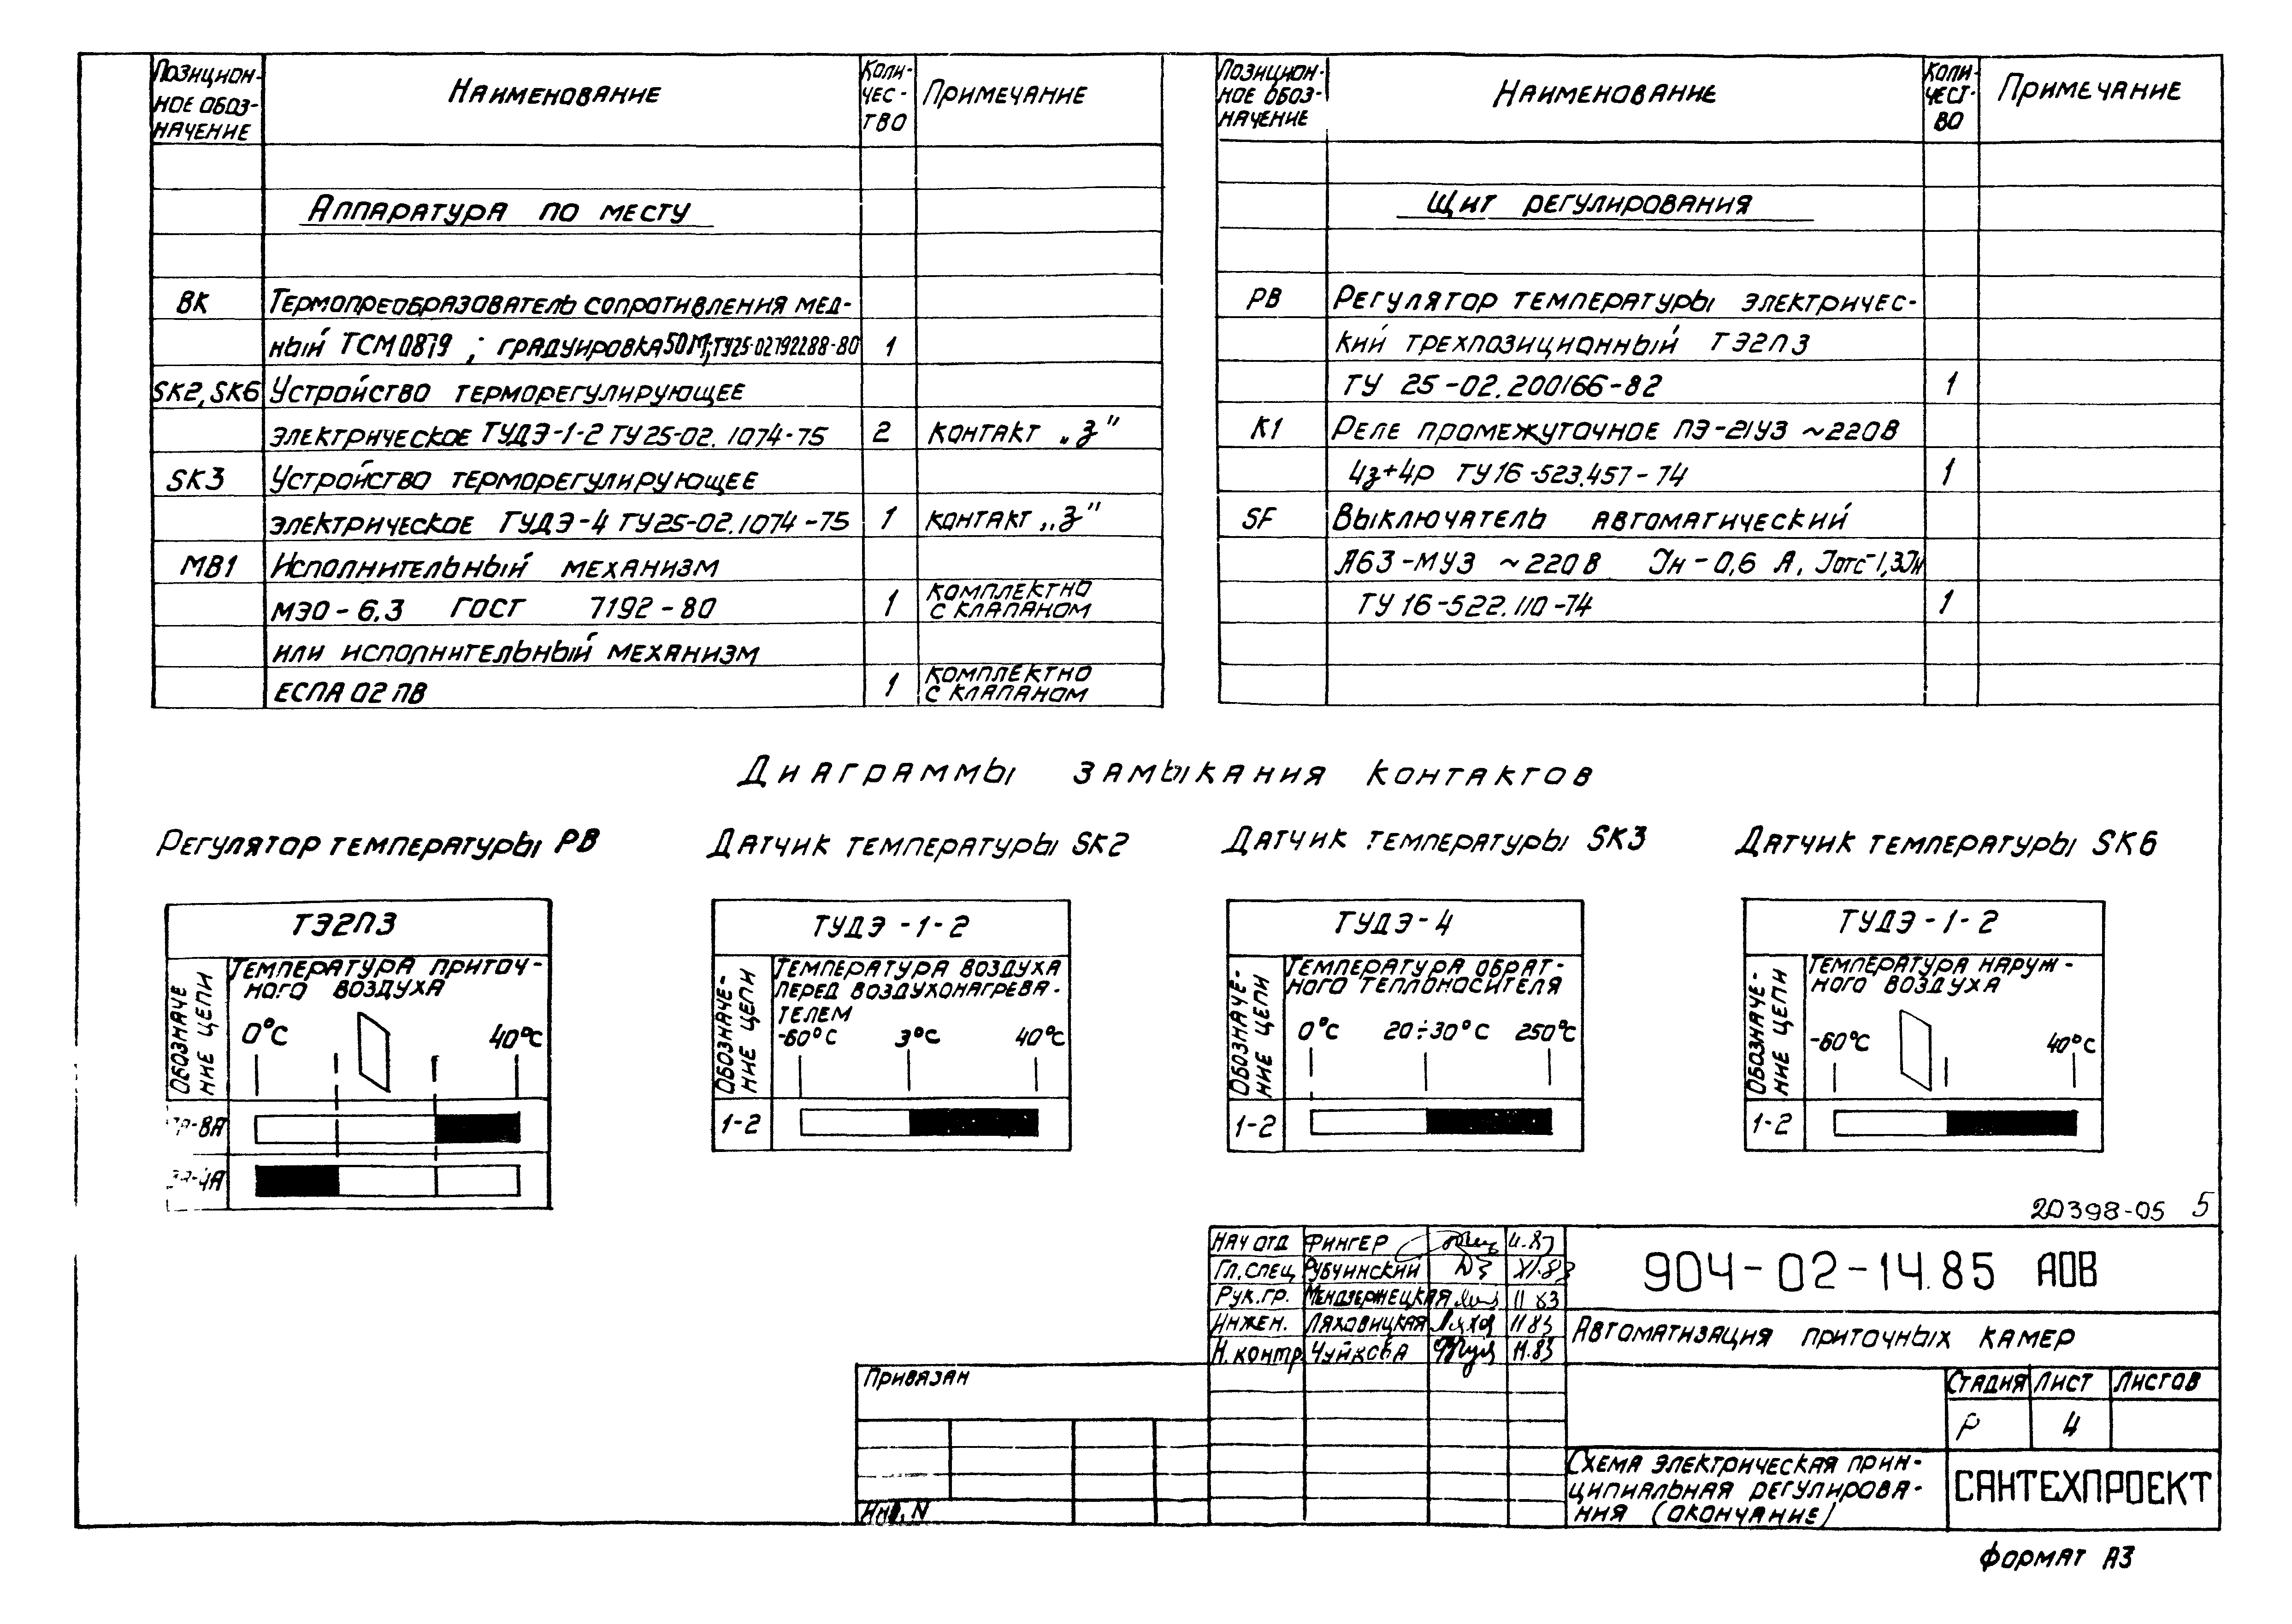 Позицион-
ное обоз-
начение
Наименование
Коли-
чес-
тво
Примечание
Аппаратура по месту
ВК
Термопреобразователь сопротивления мед-
ный ТСМ 0879 ; градуировка 50М; ТУ25-02.792288-80 1
SK2, SK6 Устройство терморегулирующее
электрическое ТУДЭ-1-2 ТУ 25-02.1074-75 2 контакт „З"
SK3 Устройство терморегулирующее
электрическое ТУДЭ-4 ТУ25-02.1074-75 1 контакт „З"
МВ1 Исполнительный механизм
МЭО-6,3 ГОСТ 7192-80 1 комплектно
с клапаном
или исполнительный механизм
ЕСПА 02 ПВ 1 комплектно
с клапаном
Позицион-
ное обоз-
начение
Наименование
Коли-
чест-
во
Примечание
Щит регулирования
РВ Регулятор температуры электричес-
кий трехпозиционный ТЭ2П3
ТУ 25-02.200166-82 1
К1 Реле промежуточное ПЭ-21У3 ~220В
4з+4р ТУ16-523.457-74 1
SF Выключатель автоматический
А63-МУ3 ~220В Iн-0,6 А, Iотс-1,3Iн
ТУ 16-522.110-74 1
Диаграммы замыкания контактов
Регулятор температуры РВ
ТЭ2П3
Обозначе
ние цепи
Температура приточ-
ного воздуха
0°С 40°С
-8А
-4А
Датчик температуры SK2
ТУДЭ-1-2
Обозначе-
ние цепи
Температура воздуха
перед воздухонагрева-
телем
-60°С 3°С 40°С
1-2
Датчик температуры SK3
ТУДЭ-4
Обозначе-
ние цепи
Температура обрат-
ного теплоносителя
0°С 20÷30°С 250°С
1-2
Датчик температуры SK6
ТУДЭ-1-2
Обозначе-
ние цепи
Температура наруж-
ного воздуха
-60°С 40°С
1-2
20398-05 5
Нач отд Фингер 11.83
Гл. спец Рубчинский XI.83
Рук. гр. Мендзержецкая 11 83
Инжен. Ляховицкая 11 83
Н. контр Чуйкова 11.83
904-02-14.85 АОВ
Автоматизация приточных камер
Привязан
Инв. N
Стадия Лист Листов
Р 4
Схема электрическая прин-
ципиальная регулирова-
ния (окончание)
САНТЕХПРОЕКТ
Формат А3